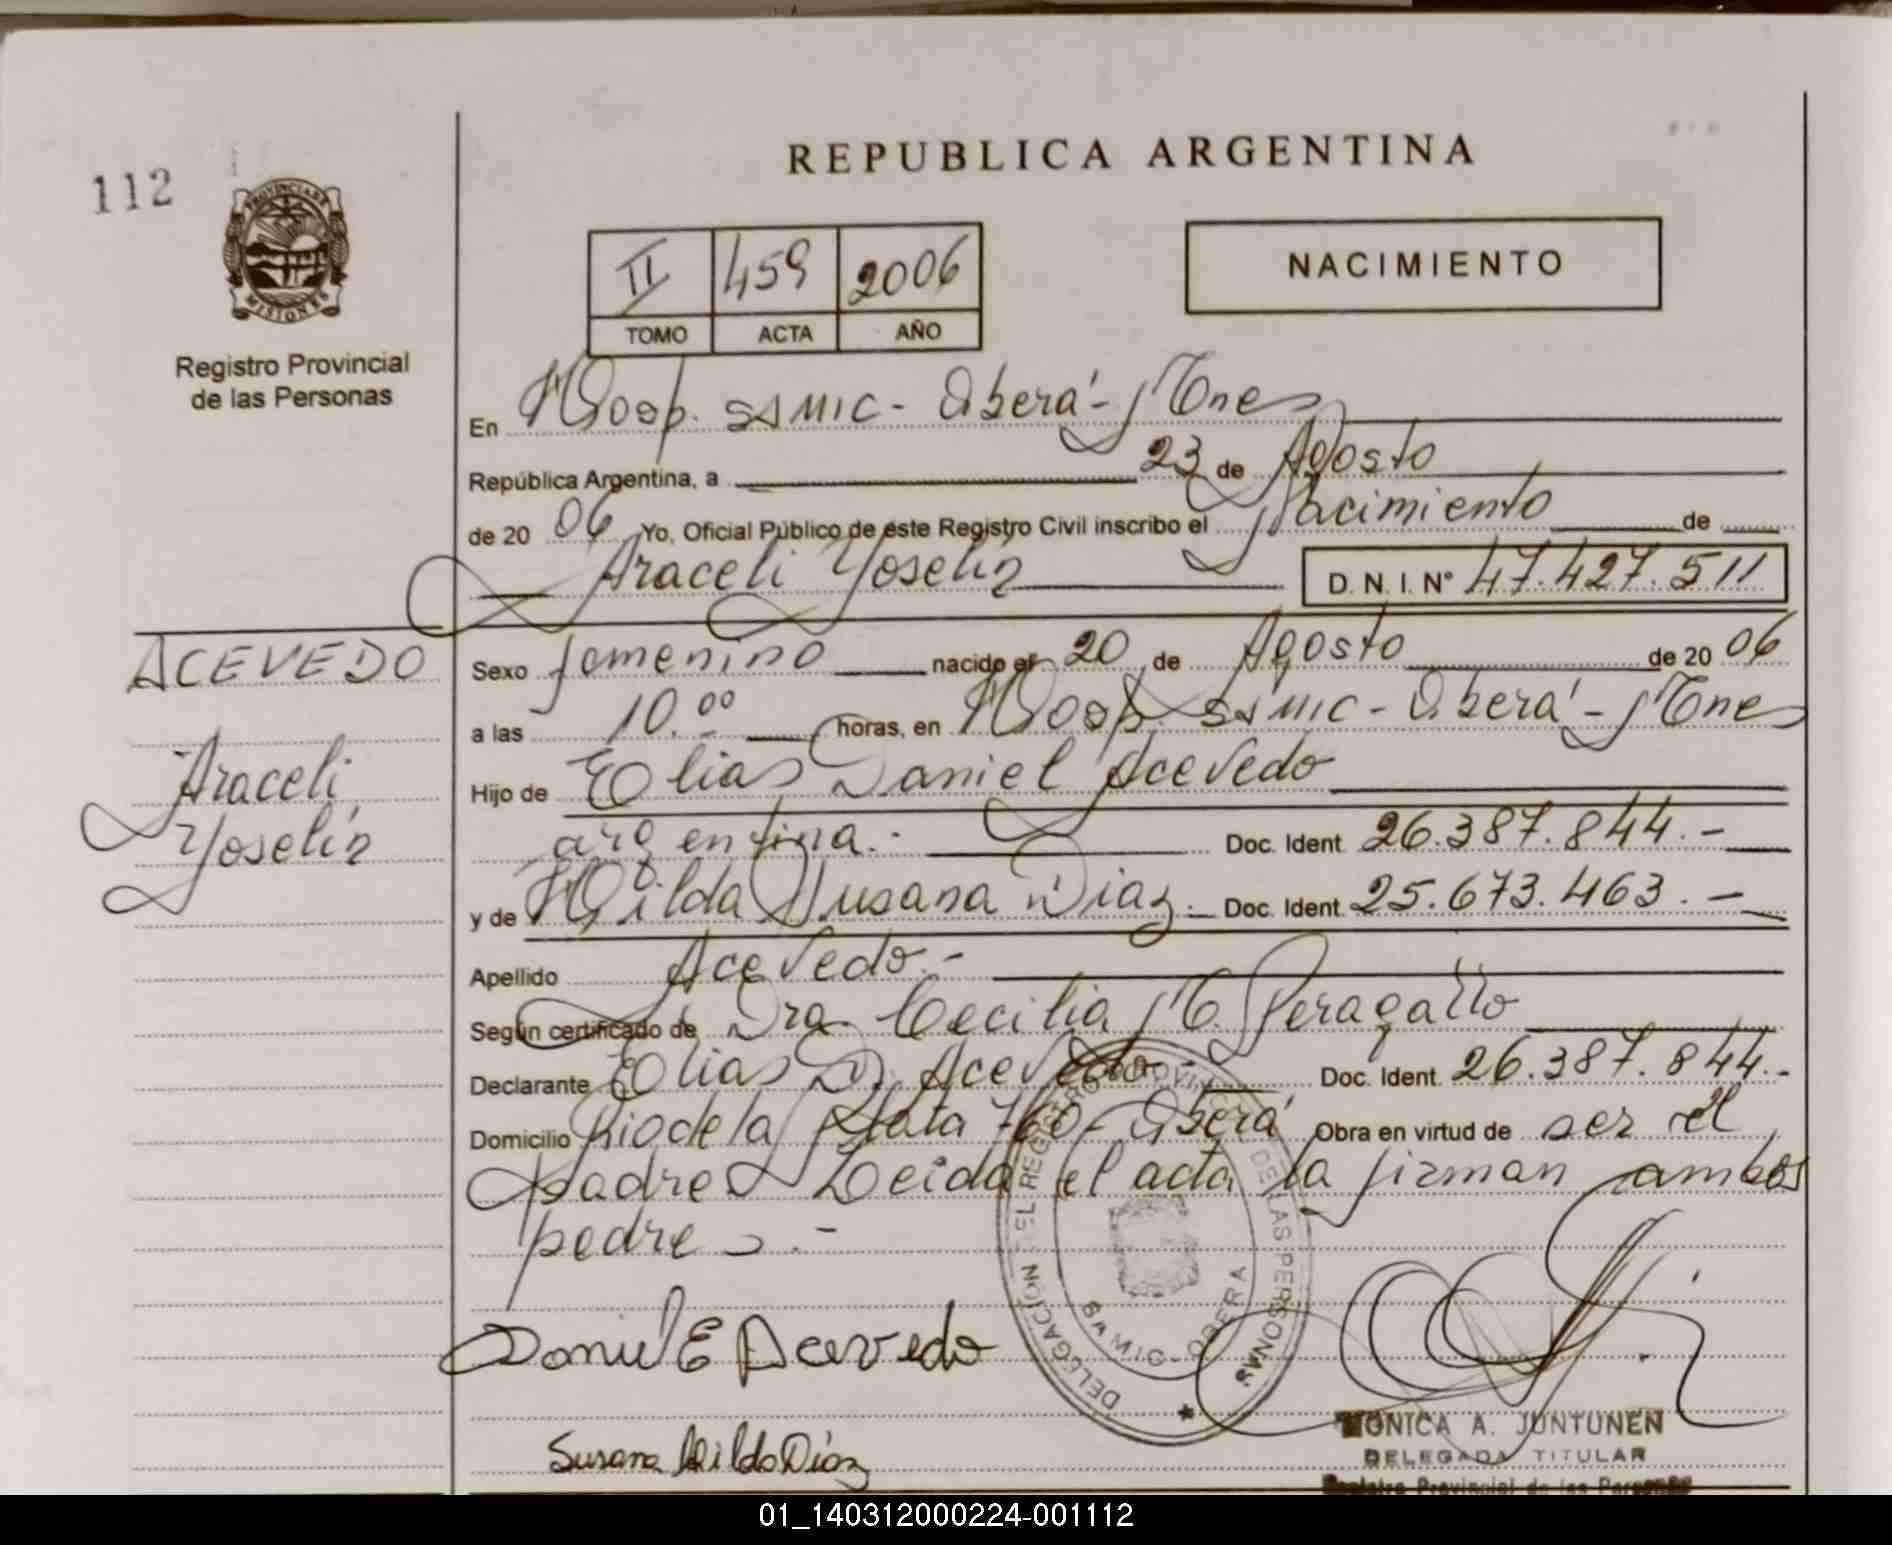 REPUBLICA ARGENTINA
112
PROVINCIA DE
MISIONES
Registro Provincial
de las Personas
II 459 2006
TOMO ACTA AÑO
NACIMIENTO
En Hosp. SAMIC - Oberá - Mnes
República Argentina, a 23 de Agosto
de 20 06 Yo, Oficial Público de este Registro Civil inscribo el Nacimiento de
Araceli Yoselin D. N. I. N° 47.427.511
ACEVEDO
Araceli
Yoselin
Sexo femenino nacido el 20 de Agosto de 20 06
a las 10.00 horas, en Hosp. SAMIC - Oberá - Mnes
Hijo de Elias Daniel Acevedo
argentina.- Doc. Ident. 26.387.844.-
y de Hilda Susana Diaz.- Doc. Ident. 25.673.463.-
Apellido Acevedo.-
Según certificado de Dra. Cecilia M. Peragallo
Declarante Elias D. Acevedo - Doc. Ident. 26.387.844.-
Domicilio Rio de la Plata 760 - Oberá Obra en virtud de ser el
padre Leida el acta la firman ambos
padres.-
DELEGACION DEL REGISTRO PROVINCIAL DE LAS PERSONAS
SAMIC - OBERA
Daniel E Acevedo
Susana Hilda Díaz
MONICA A. JUNTUNEN
DELEGADA TITULAR
Registro Provincial de las Personas
01_140312000224-001112